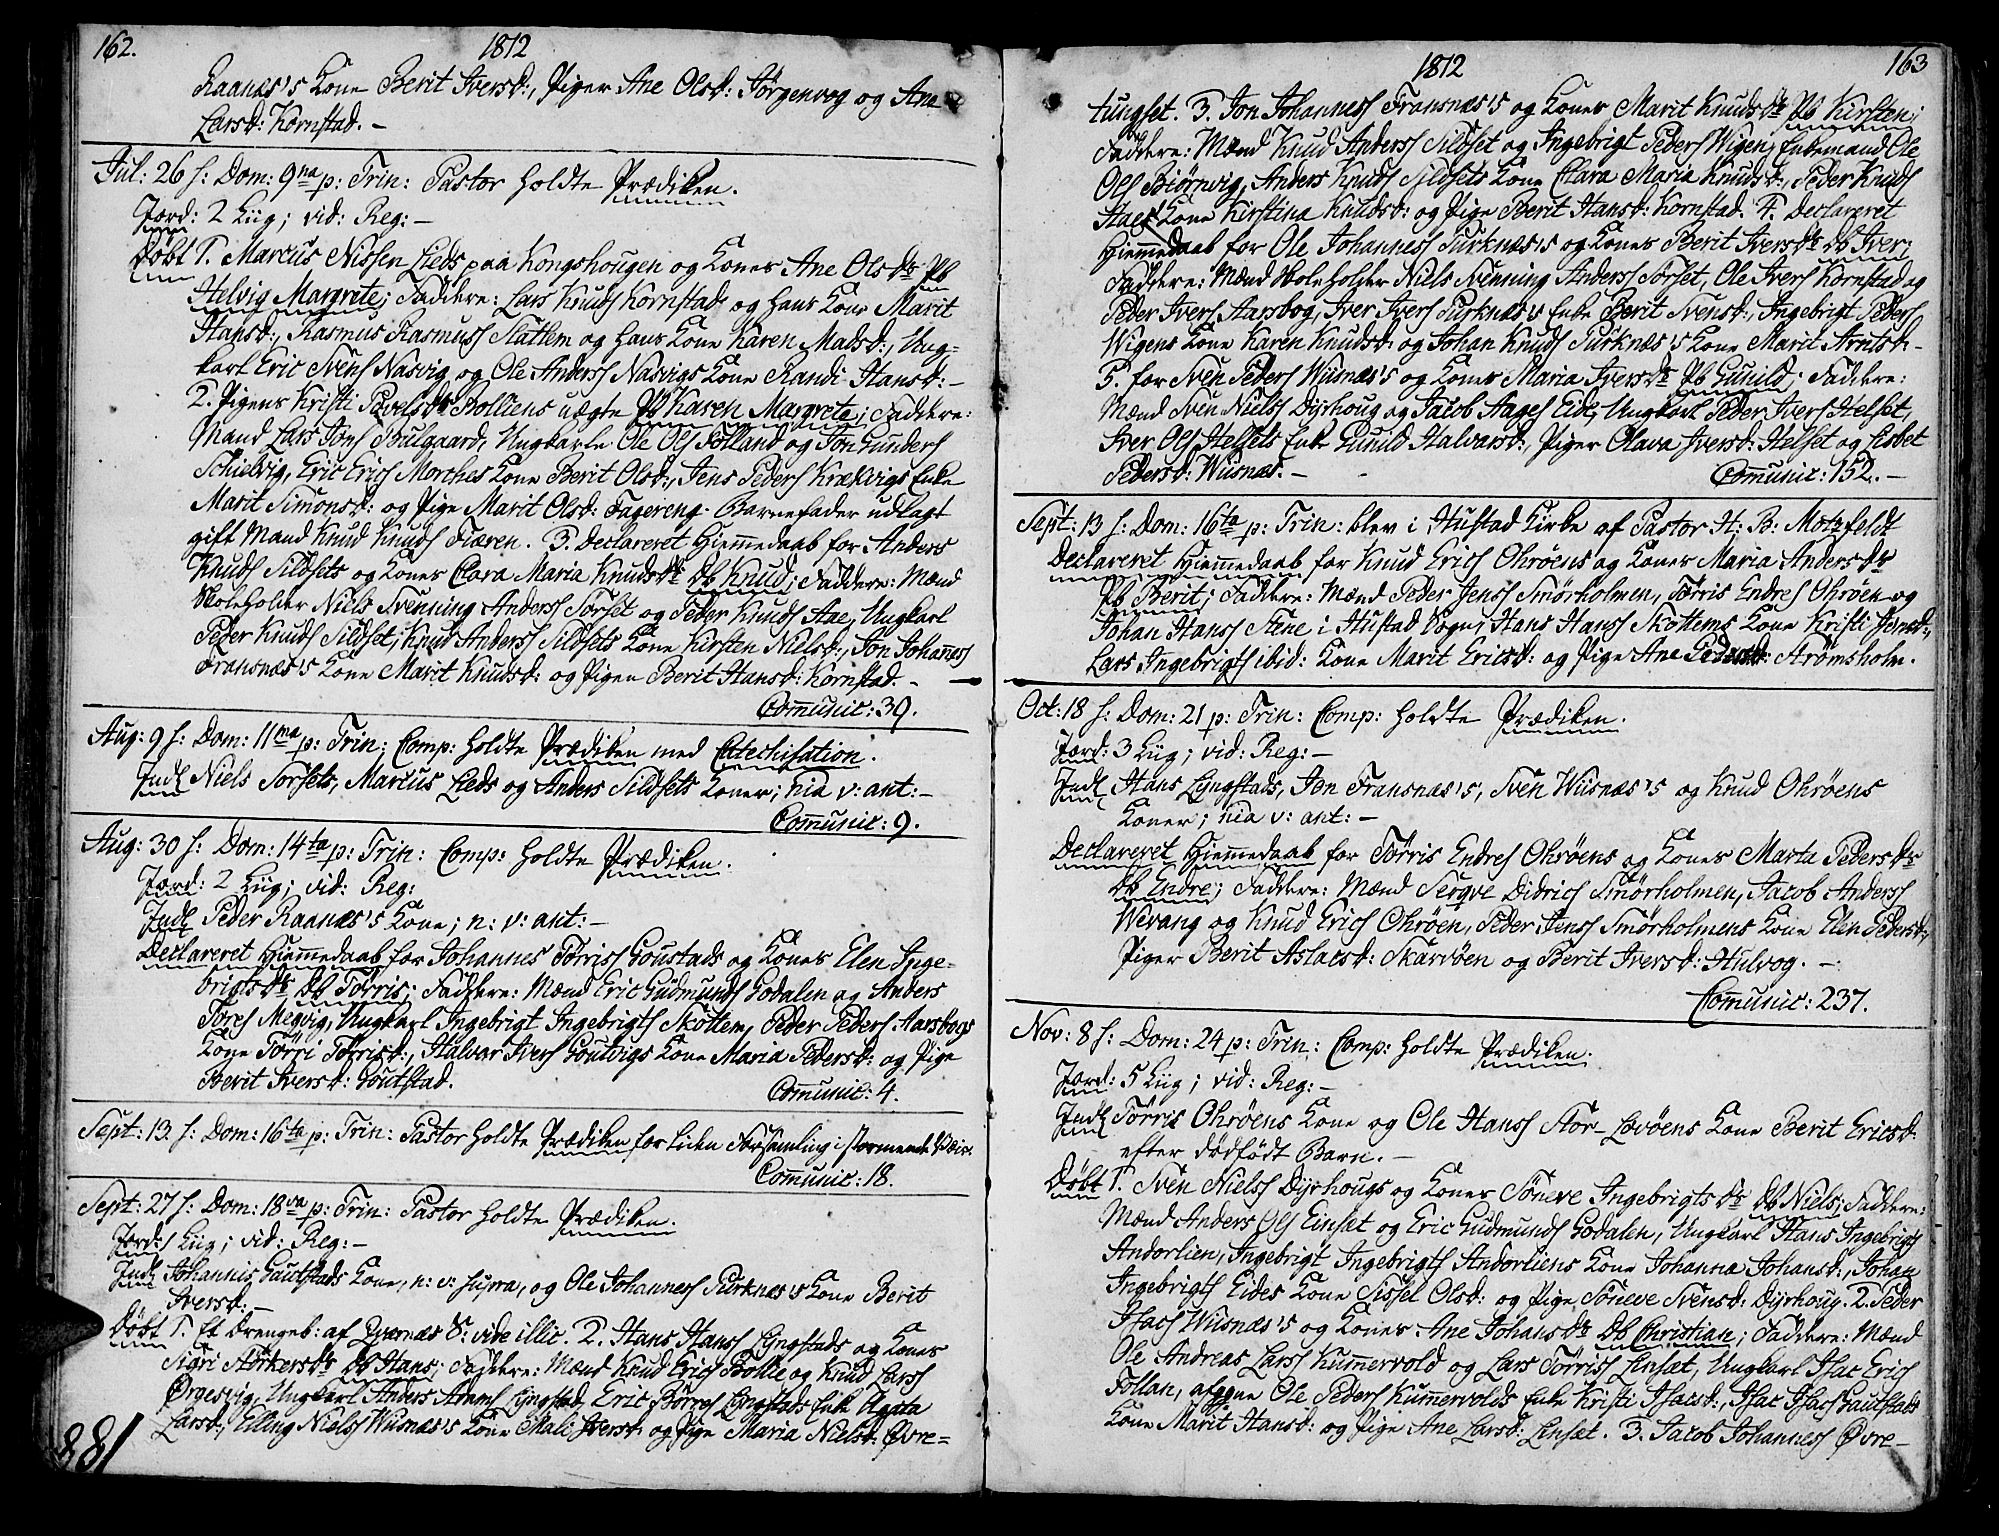 162.
1812
Raanæs's Kone Berit Iversd:, Piger Ane Olsd: Jørgenvog og Ane
Larsd: Kornstad. -
Jul: 26 s: Dom: 9na p: Trin: Pastor holdte Prædiken.
Jord: 2 Liig; vid: Reg: -
Døbt 1. Marcus Nissen Lieds paa Kongshougen og Kones Ane Olsdr Pb
Helvig Margrete; Faddere: Lars Knuds Kornstad og hans Kone Marit
Hansd:, Rasmus Rasmuss Slatlem og hans Kone Karen Madsd:, Ung-
karl Eric Svens Nasvig og Ole Anderss Nasvigs Kone Randi Hansd: -
2. Pigens Kristi Povelsdr Bolliens uægte Pb Karen Margrete; Faddere:
Mand Lars Jons Brulgaard, Ungkarle Ole Ols Folland og Jon Gunders
Schielvig, Eric Erics Morches Kone Berit Olsd:, Jens Peders Krækvigs Enke
Marit Simonsd: og Pige Marit Olsd: Fagereng. Barnefader udlagt
gift Mand Knud Knuds Fiæren. 3. Declareret Hiemmedaab for Anders
Knuds Sildsets og Kones Clara Maria Knudsdr Db Knud; Faddere: Mænd
Skoleholder Niels Svenning Anderss Torset og Peder Knuds Aae, Ungkarl
Peder Knuds Sildset, Knud Anderss Sildsets Kone Kirsten Nielsd:, Jon Johanness
Fransnæs's Kone Marit Knudsd: og Pigen Berit Hansd: Kornstad. -
Comunic: 39.
Aug: 9 s: Dom: 11ma p: Trin: Comp: holdte Prædiken med Catechisation.
Indl Niels Torsets, Marcus Lieds og Anders Sildsets Koner; nia v: ant: -
Comunic: 9.
Aug: 30 s: Dom: 14ta p: Trin: Comp: holdte Prædiken.
Jord: 2 Liig; vid: Reg:
Indl Peder Raanæs's Kone; n: v: ant: -
Declareret Hiemmedaab for Johannes Tørriss Goustads og Kones Elen Inge-
brigtsdr Db Tørris; Faddere: Mænd Eric Gudmunds Godalen og Anders
Tores Megvig, Ungkarl Ingebrigt Ingebrigts Skottem, Peder Peders Aarsbogs
Kone Tørri Tørrisd:, Halvar Ivers Goutvigs Kone Maria Pedersd: og Pige
Berit Iversd: Goutstad.
Comunic: 4.
Sept: 13. s: Dom: 16ta p: Trin: Pastor holdte Prædiken for liden Forsamling i stormende Veir.
Comunic: 18.
Sept: 27 s: Dom: 18va p: Trin: Pastor holdte Prædiken.
Jord: 1 Liig; vid: Reg: -
Indl Johannis Gautstads Kone, n: v: supra, og Ole Johanness Turknæs's Kone Berit
Iversd: -
Døbt 1. Et Drengeb: af Qvernæs S: vide illic. 2. Hans Hanss Lyngstads og Kones
Sigri Størkersdr Db Hans; Faddere: Mænd Knud Erics Bollie og Knud Larss
Ørgesvig, Ungkarl Anders Lyngstad, Eric Børres Lyngstads Enke Agata
Larsd:, Elling Niels Wusnæs's Kone Mali Iversd: og Pige Maria Nielsd: Øvre-
881
1812
163
tungset. 3. Jon Johanness Fransnæs's og Kones Marit Knudsdr Pb Kirsten;
Faddere: Mænd Knud Anderss Sildset og Ingebrigt Peders Wigen, Enkemand Ole
Ols Biørnvig, Anders Knuds Sildsets Kone Clara Maria Knudsd:, Peder Knuds
Aaes Kone Kirstina Knudsd: og Pige Berit Hansd: Kornstad. 4. Declareret
Hiemmedaab for Ole Johanness Turknæs's og Kones Berit Iversdr Db Iver;
Faddere: Mænd Skoleholder Niels Svenning Anderss Torset, Ole Ivers Kornstad og
Peder Ivers Aarsbog, Iver Ivers Turknæs's Enke Berit Svensd:, Ingebrigt Peders
Wigens Kone Karen Knudsd: og Johan Knuds Turknæs's Kone Marit Arntsd: -
5. for Sven Peders Wusnæs's og Kones Maria Iversdr Pb Gunild; Faddere:
Mænd Sven Niels Dyrhoug og Jacob Aages Eide, Ungkarl Peder Ivers Helset,
Iver Ols Helsets Enke Gunild Halvarsd:, Piger Olava Iversd: Helset og Lisbet
Pedersd: Wusnæs. -
Comunic: 152. -
Sept: 13 s: Dom: 16ta p: Trin: blev i Hustad Kirke af Pastor H: B: Motzfeldt
Declareret Hiemmedaab for Knud Erics Ohrøens og Kones Maria Andersdr
Pb Berit; Faddere: Mænd Peder Jenss Smørholmen, Tørris Endres Ohrøen og
Johan Hanss Stene i Hustad Sogn, Hans Hanss Skottems Kone Kristi Jensd:,
Lars Ingebrigts ibid: Kone Marit Ericsd: og Pige Ane Pedersd: Strømsholm.
Oct: 18 s: Dom: 21 p: Trin: Comp: holdte Prædiken.
Jord: 3 Liig; vid: Reg: -
Indl Hans Lyngstads, Jon Fransnæs's, Sven Wusnæs's og Knud Ohrøens
Koner; nia v: ant: -
Declareret Hiemmedaab for Tørris Endres Ohrøens og Kones Marta Pedersdr
Db Endre; Faddere: Mænd Siogve Didrics Smørholmen, Jacob Anderss
Wevang og Knud Erics Ohrøen, Peder Jenss Smørholmens Kone Elen Pedersd:,
Piger Berit Aslacsd: Skarvøen og Berit Iversd: Hulvog. -
Comunic: 237.
Nov: 8 s: Dom: 24 p: Trin: Comp: holdte Prædiken.
Jord: 5 Liig; vid: Reg: -
Indl Tørris Ohrøens Kone og Ole Hanss Stor-Lævøens Kone Berit Ericsd:
efter dødfødt Barn. -
Døbt 1. Sven Nielss Dyrhougs og Kones Søneve Ingebrigtsdr Db Niels; Faddere:
Mænd Anders Ols Einsæt og Eric Gudmunds Godalen, Ungkarl Hans Ingebrigts
Andorlien, Ingebrigt Ingebrigts Andorliens Kone Johanna Johansd:, Johan
Ingebrigts Eides Kone Sissel Olsd: og Pige Søneve Svensd: Dyrhoug. 2. Peder
Isacs Wusnæs's og Kones Ane Johansdr Db Christian; Faddere: Mænd
Ole Andreas Larss Kummervold og Lars Tørriss Linsæt, Ungkarl Isac Erics
Follan, afggne Ole Peders Kummervolds Enke Kristi Isacsd:, Isac Isacs Gautstads
Kone Marit Hansd: og Pige Ane Larsd: Linsæt. 3. Jacob Johanness Øvre-